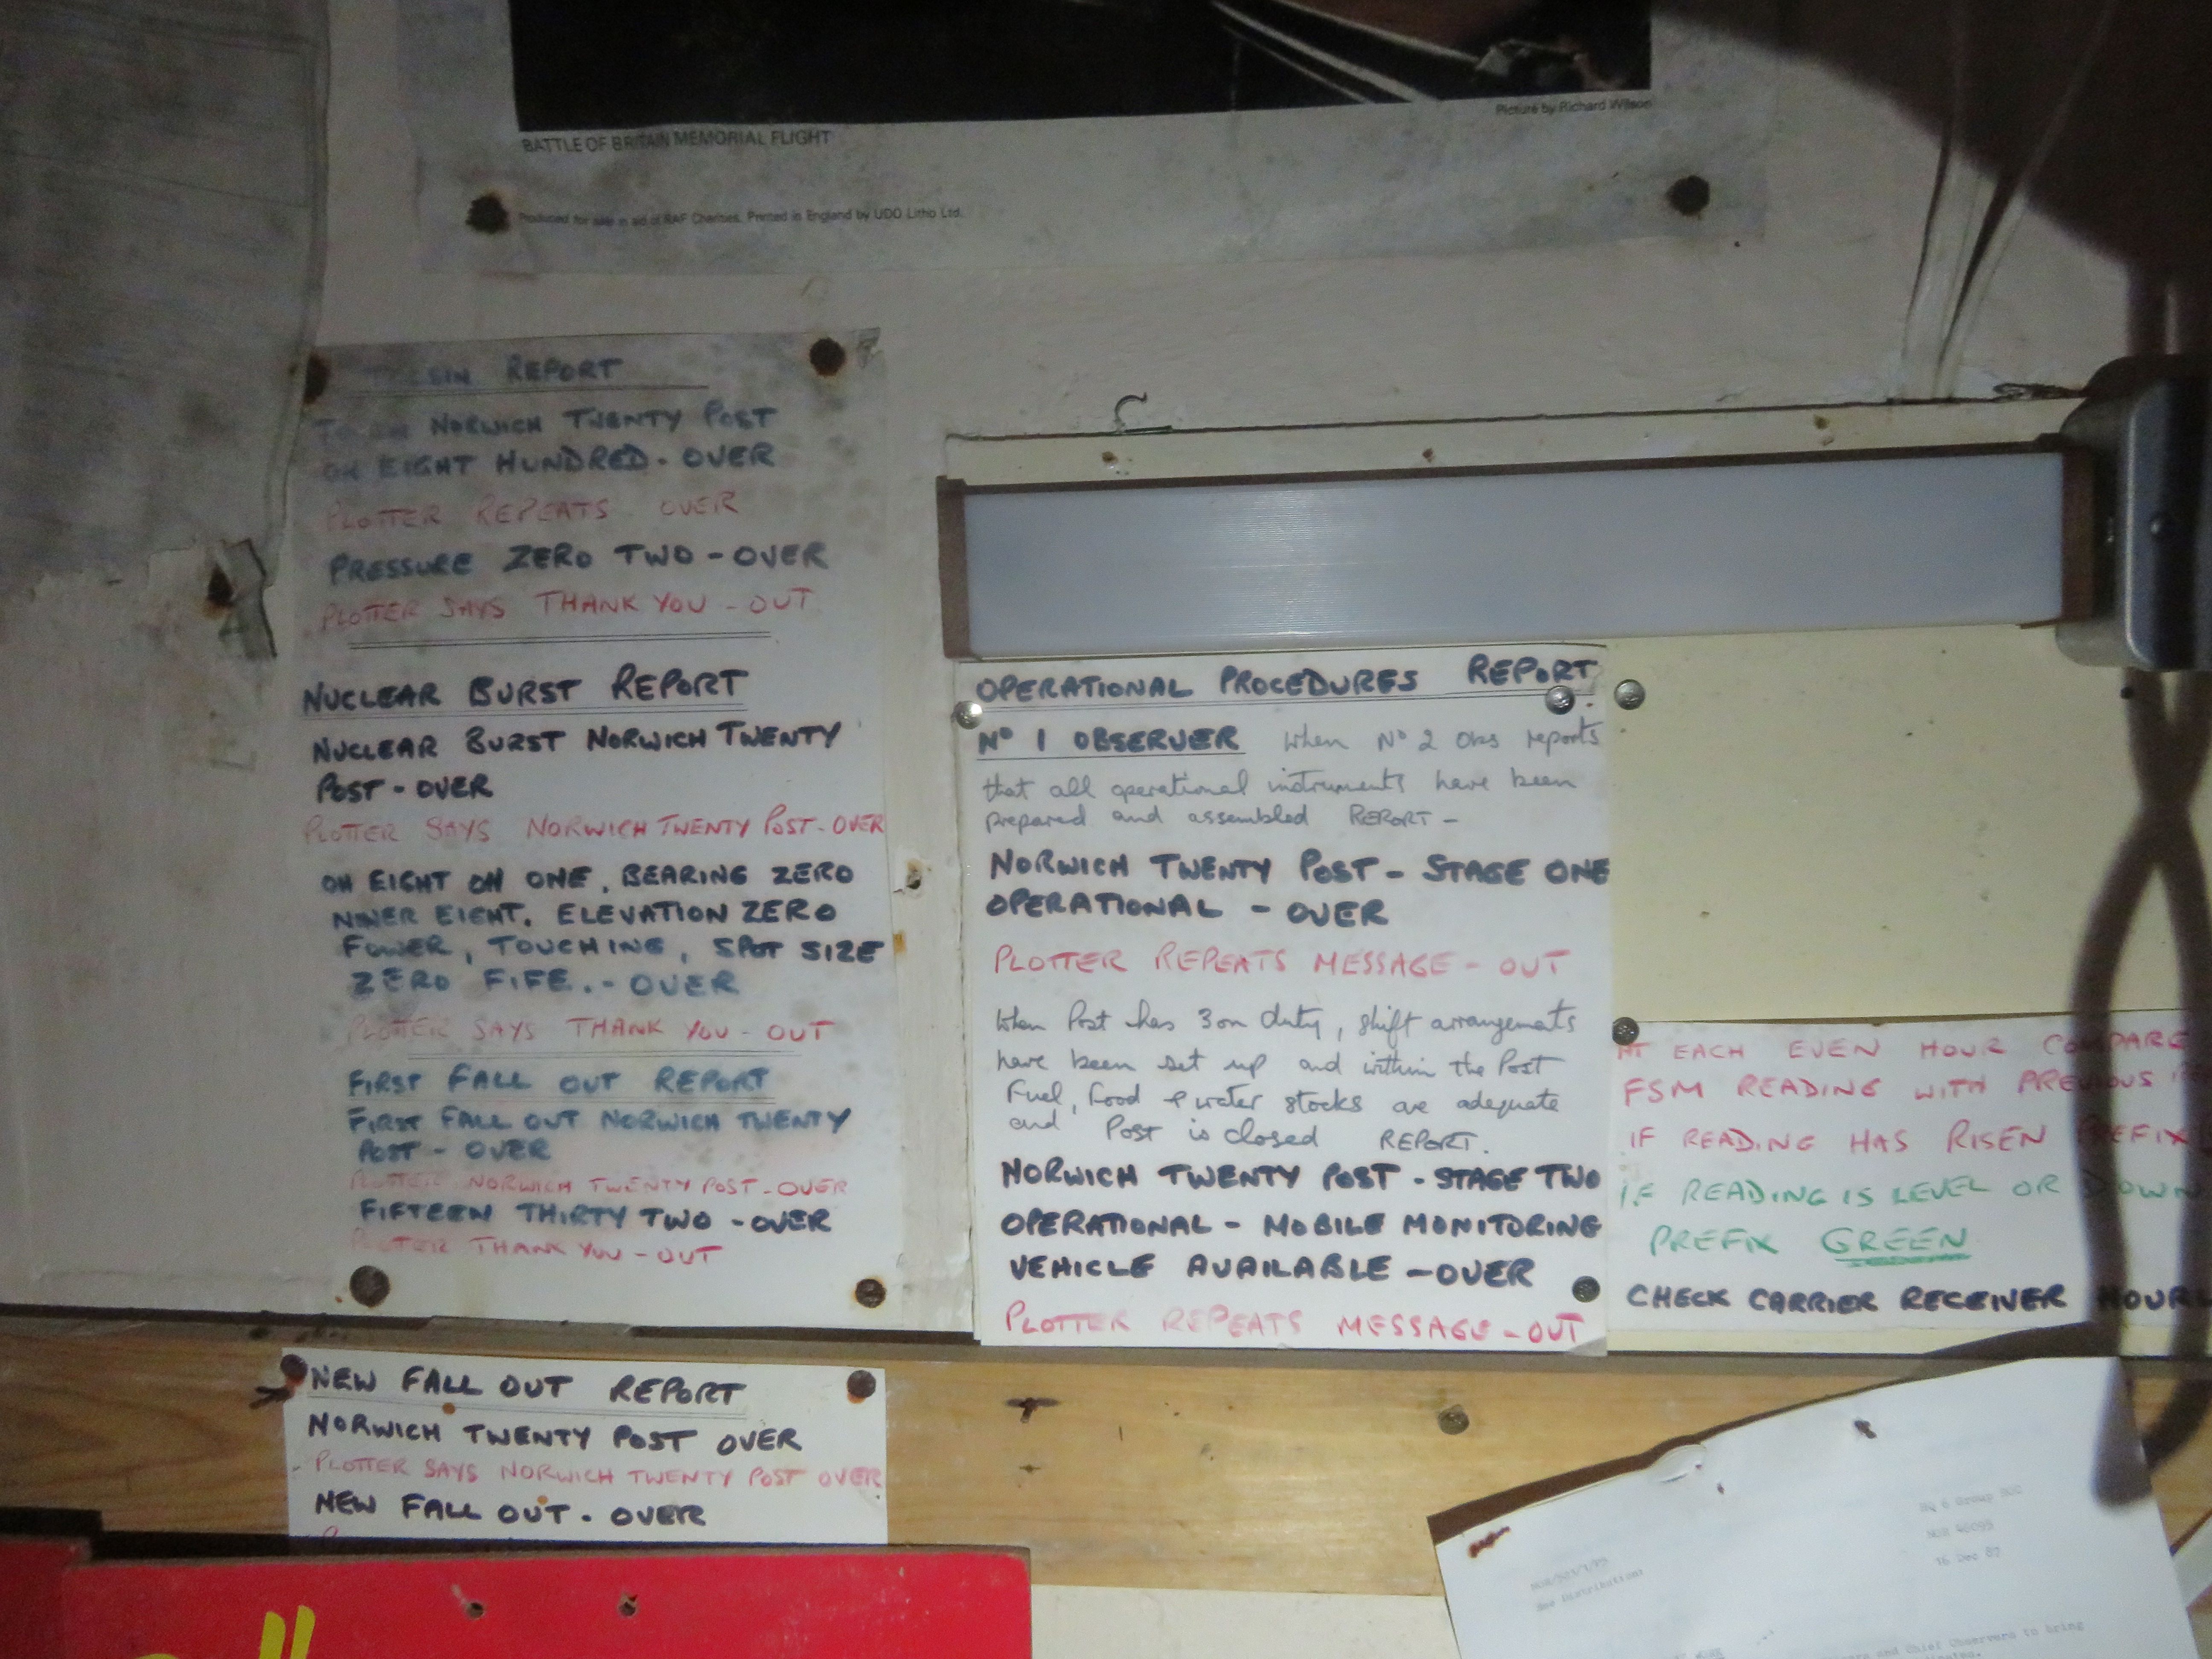 BATTLE OF BRITAIN MEMORIAL FLIGHT
Picture by Richard Wilson
Produced for sale in aid of RAF Charities. Printed in England by UDO Litho Ltd.
REPORT
NORWICH TWENTY POST
OH EIGHT HUNDRED - OVER
PLOTTER REPEATS OVER
PRESSURE ZERO TWO - OVER
PLOTTER SAYS THANK YOU - OUT
NUCLEAR BURST REPORT
NUCLEAR BURST NORWICH TWENTY
POST - OVER
PLOTTER SAYS NORWICH TWENTY POST - OVER
OH EIGHT OH ONE, BEARING ZERO
NINER EIGHT, ELEVATION ZERO
FOWER, TOUCHING, SPOT SIZE
ZERO FIFE. - OVER
PLOTTER SAYS THANK YOU - OUT
FIRST FALL OUT REPORT
FIRST FALL OUT NORWICH TWENTY
POST - OVER
PLOTTER NORWICH TWENTY POST - OVER
FIFTEEN THIRTY TWO - OVER
PLOTTER THANK YOU - OUT
NEW FALL OUT REPORT
NORWICH TWENTY POST OVER
PLOTTER SAYS NORWICH TWENTY POST OVER
NEW FALL OUT - OVER
OPERATIONAL PROCEDURES REPORT
Nº 1 OBSERVER When Nº 2 Obs reports
that all operational instruments have been
prepared and assembled REPORT -
NORWICH TWENTY POST - STAGE ONE
OPERATIONAL - OVER
PLOTTER REPEATS MESSAGE - OUT
When Post has 3 on duty, shift arrangements
have been set up and within the Post
Fuel, food & water stocks are adequate
and Post is closed REPORT.
NORWICH TWENTY POST - STAGE TWO
OPERATIONAL - MOBILE MONITORING
VEHICLE AVAILABLE - OVER
PLOTTER REPEATS MESSAGE - OUT
AT EACH EVEN HOUR COMPARE
FSM READING WITH PREVIOUS
IF READING HAS RISEN PREFIX
IF READING IS LEVEL OR DOWN
PREFIX GREEN
CHECK CARRIER RECEIVER HOUR
Hq 6 Group ROC
16 Dec 87
See Distribution
and Chief Observers to bring